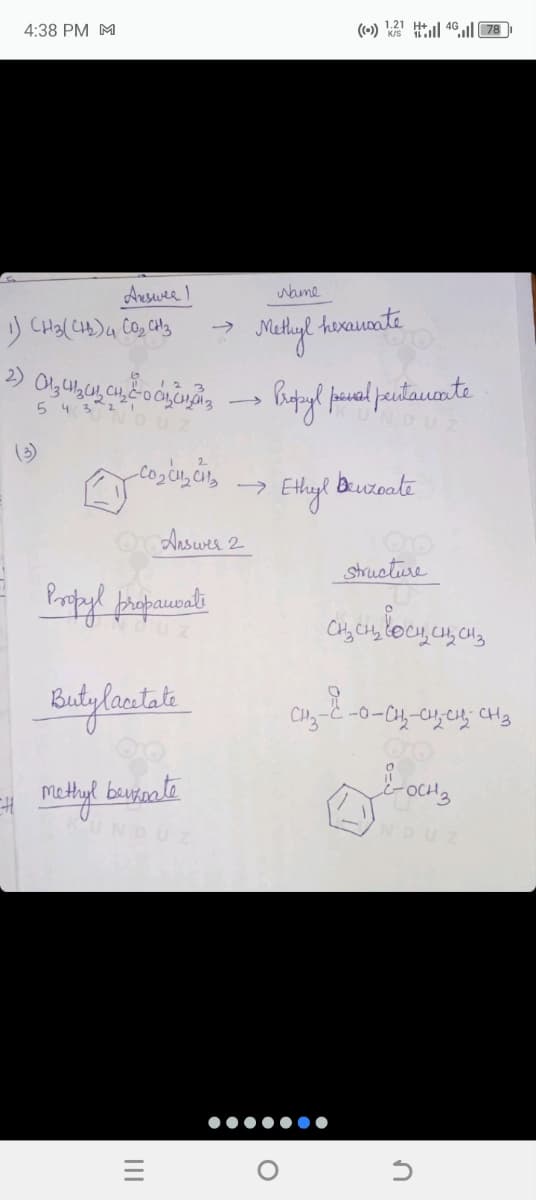 4:38 PM M
1.21 K/S H+ 4G 78
Answer 1 Name
1) CH3(CH2)4 CO2 CH3 → Methyl hexanoate
O 1 2 3
2) CH3CH2CH2CH2C-OCH2CH2CH3 → Propyl pentanoate
5 4 3 2 1
(3)
1 2
-CO2CH2CH3 → Ethyl benzoate
Answer 2
structure
Propyl propanoate
O
CH3CH2COCH2CH2CH3
Butylacetate
O
CH3-C-O-CH2-CH2-CH2-CH3
methyl benzoate
O
C-OCH3
KUNDUZ